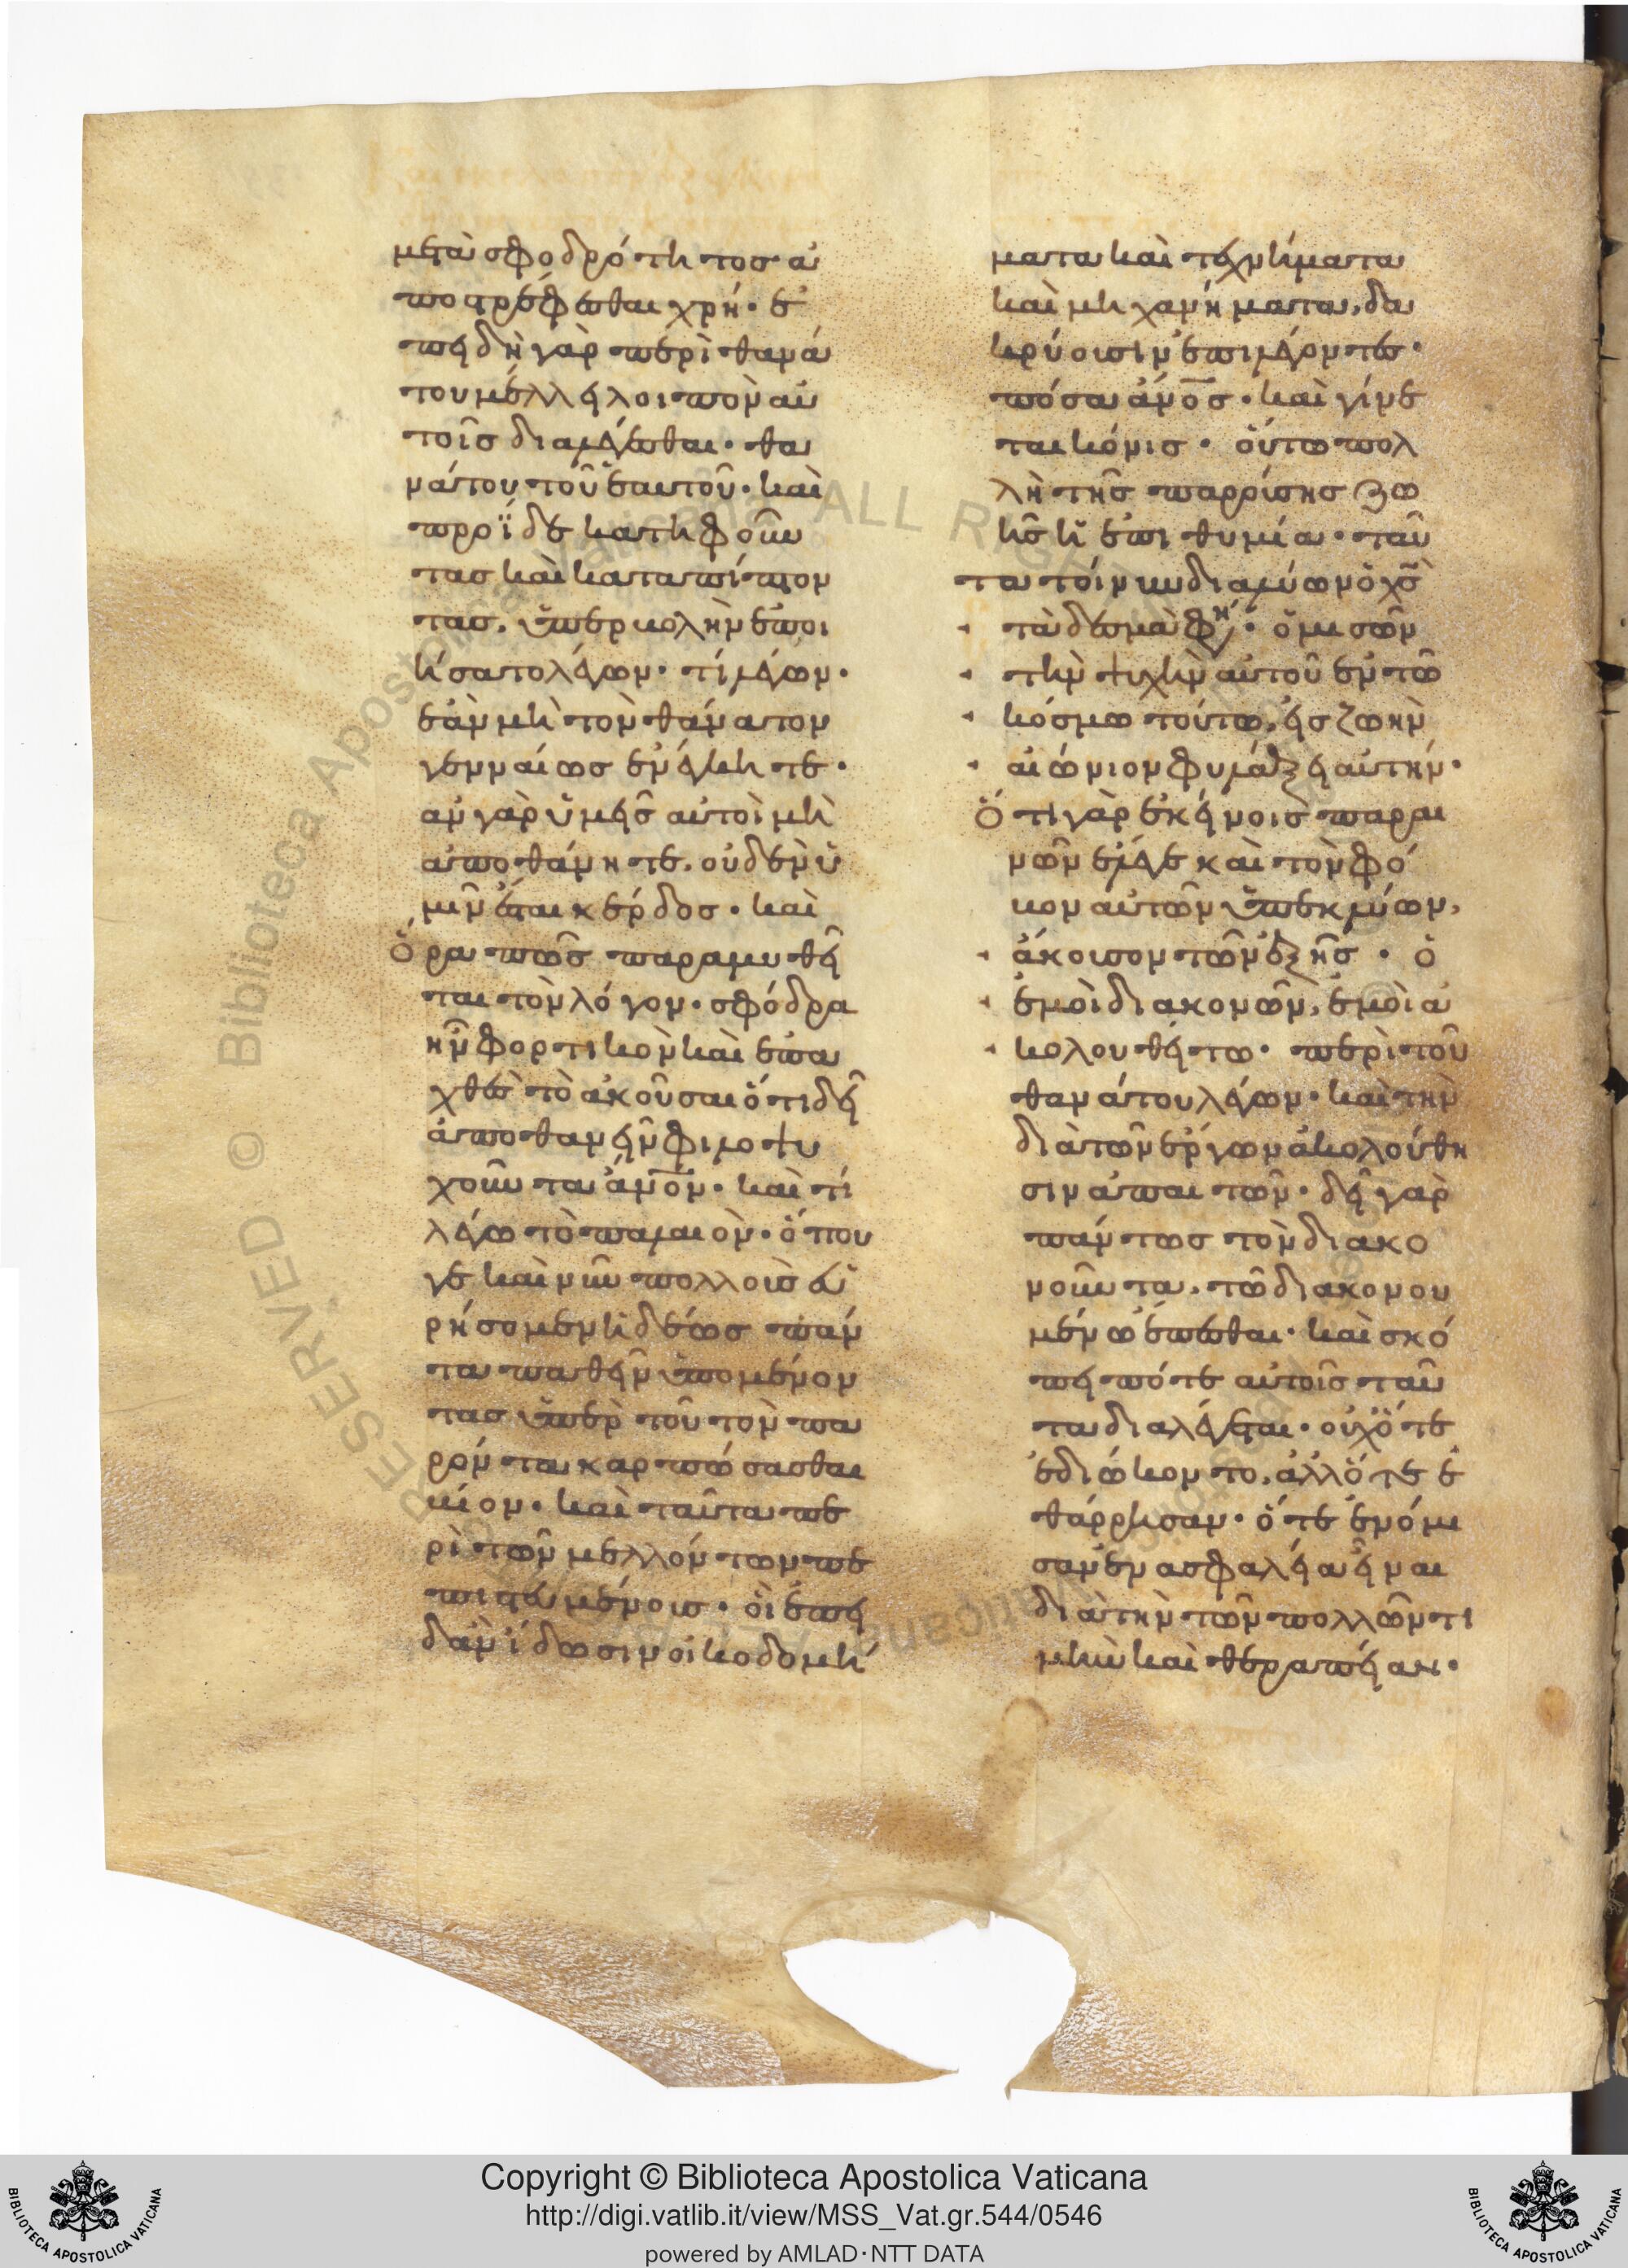 μετὰ σφοδρότητος ἀ
ποστρέφεσθαι χρή· ἐ
πειδὴ γὰρ περὶ θανά
του μέλλει λοιπὸν αὐ
τοῖς διαλέγεσθαι· θα
νάτου τοῦ ἑαυτοῦ· καὶ
προῖδε κατηφοῦν
τας καὶ καταπίπτον
τας, ὑπερβολὴν ἐποι
ήσατο λέγων· τί λέγων·
ἐὰν μὴ τὸν θάνατον
γενναίως ἐνέγκητε·
ἂν γὰρ ὑμεῖς αὐτοὶ μὴ
ἀποθάνητε, οὐδὲν ὑ
μῖν ἔσται κέρδος· καὶ
ὅρα πῶς παραμυθεῖ
ται τὸν λόγον· σφόδρα
ἦν φορτικὸν καὶ ἐπα
χθὲς τὸ ἀκοῦσαι ὅτι δεῖ
ἀποθανεῖν φιλοψυ
χοῦντα ἄνον· καὶ τί
λέγω τὸ παλαιὸν· ὅπου
γε καὶ νῦν πολλοὺς εὑ
ρήσομεν ἡδέως πάν
τα παθεῖν ὑπομένον
τας ὑπὲρ τοῦ τὸν πα
ρόντα καρπώσασθαι
βίον· καὶ ταῦτα πε
ρὶ τῶν μελλόντων πε
πιστευμένοις· οἳ ἐπει
δὰν ἴδωσιν οἰκοδομή
ματα καὶ τεχνήματα
καὶ μηχανήματα, δα
κρύουσιν ἐπιλέγοντες·
πόσα ἄνος· καὶ γίνε
ται κόνις· οὕτω πολ
λὴ τῆς παρούσης ζω
ῆς ἡ ἐπιθυμία· ταῦ
τα τοίνυν διαλύων ὁ χς
τὰ δεσμὰ φη· ὁ μισῶν
τὴν ψυχὴν αὐτοῦ ἐν τῶ
κόσμω τούτω, εἰς ζωὴν
αἰώνιον φυλάξει αὐτήν·
Ὅτι γὰρ ἐκείνοις παραι
νῶν ἔλεγε καὶ τὸν φό
βον αὐτῶν ὑπεκλύων,
ἄκουσον τῶν ἑξῆς· ὁ
ἐμοὶ διακονῶν, ἐμοὶ ἀ
κολουθείτω· περὶ τοῦ
θανάτου λέγων· καὶ τὴν
διὰ τῶν ἔργων ἀκολούθη
σιν ἀπαιτῶν· δεῖ γὰρ
πάντως τὸν διακο
νοῦντα, τῶ διακονου
μένω ἕπεσθαι· καὶ σκό
πει πότε αὐτοῖς ταῦ
τα διαλέγεται· οὐχ ὅτε
ἐδιώκοντο, ἀλλ' ὅτε ἐ
θάρρησαν· ὅτε ἐνόμι
σαν ἐν ἀσφαλεία εἶναι
διὰ τὴν τῶν πολλῶν τι
μὴν καὶ θεραπείαν·
Copyright © Biblioteca Apostolica Vaticana
http://digi.vatlib.it/view/MSS_Vat.gr.544/0546
powered by AMLAD·NTT DATA